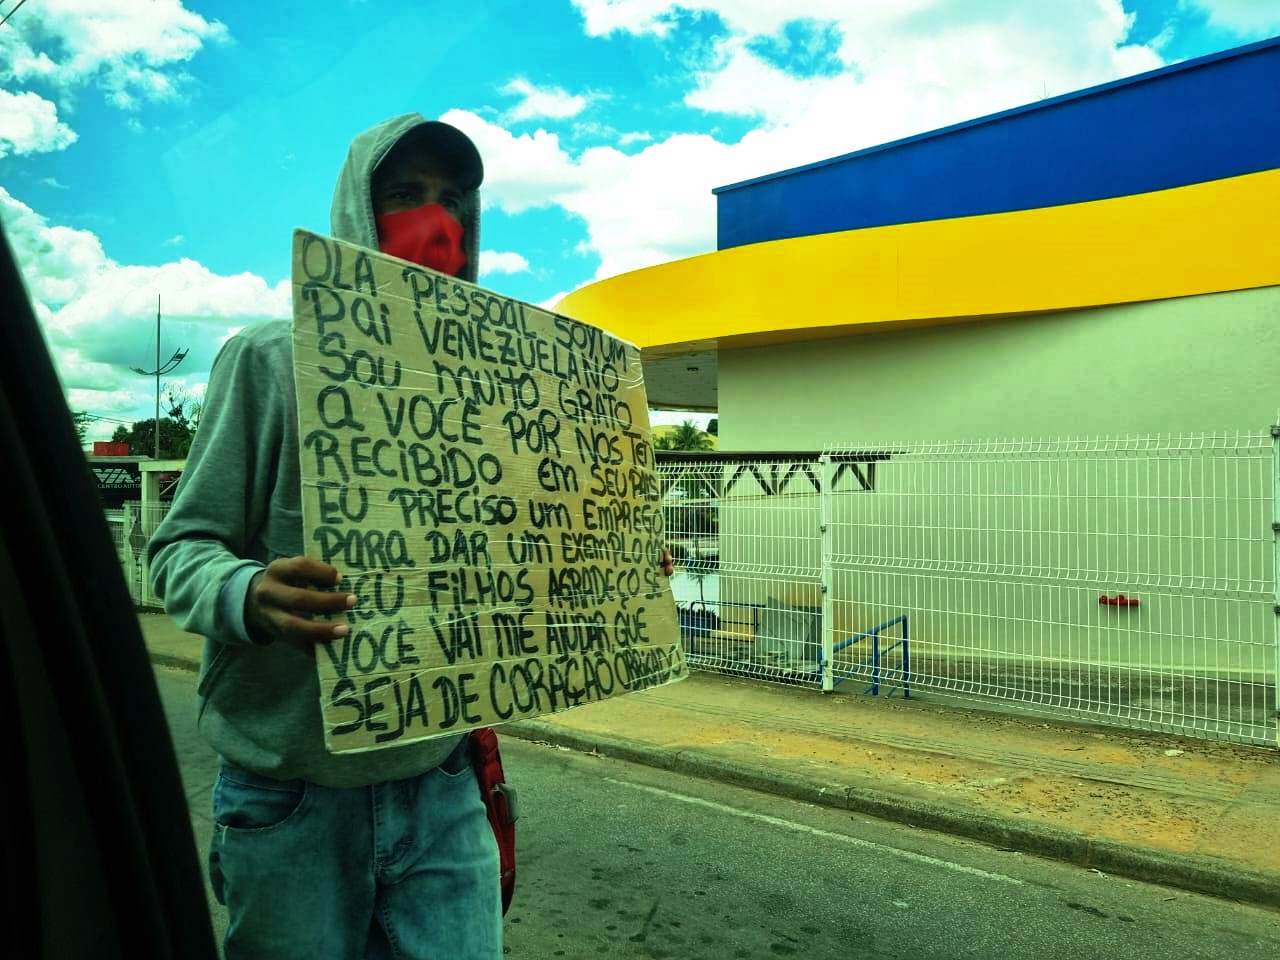 OLA PESSOAL SOY UM
Pai VENEZUELANO
SOU MUITO GRATO
a VOCÊ POR NOS TER
RECIBIDO em SEU PAIS
EU PRECISO um EMPREGO
PaRa DAR um EXEMPLO
MEU FiLHOS AGRADEÇO SE
VOCÊ VAI ME AJUDAR QUE
SEJA DE CORAÇÃO OBRIGADO
CENTRO AUTO